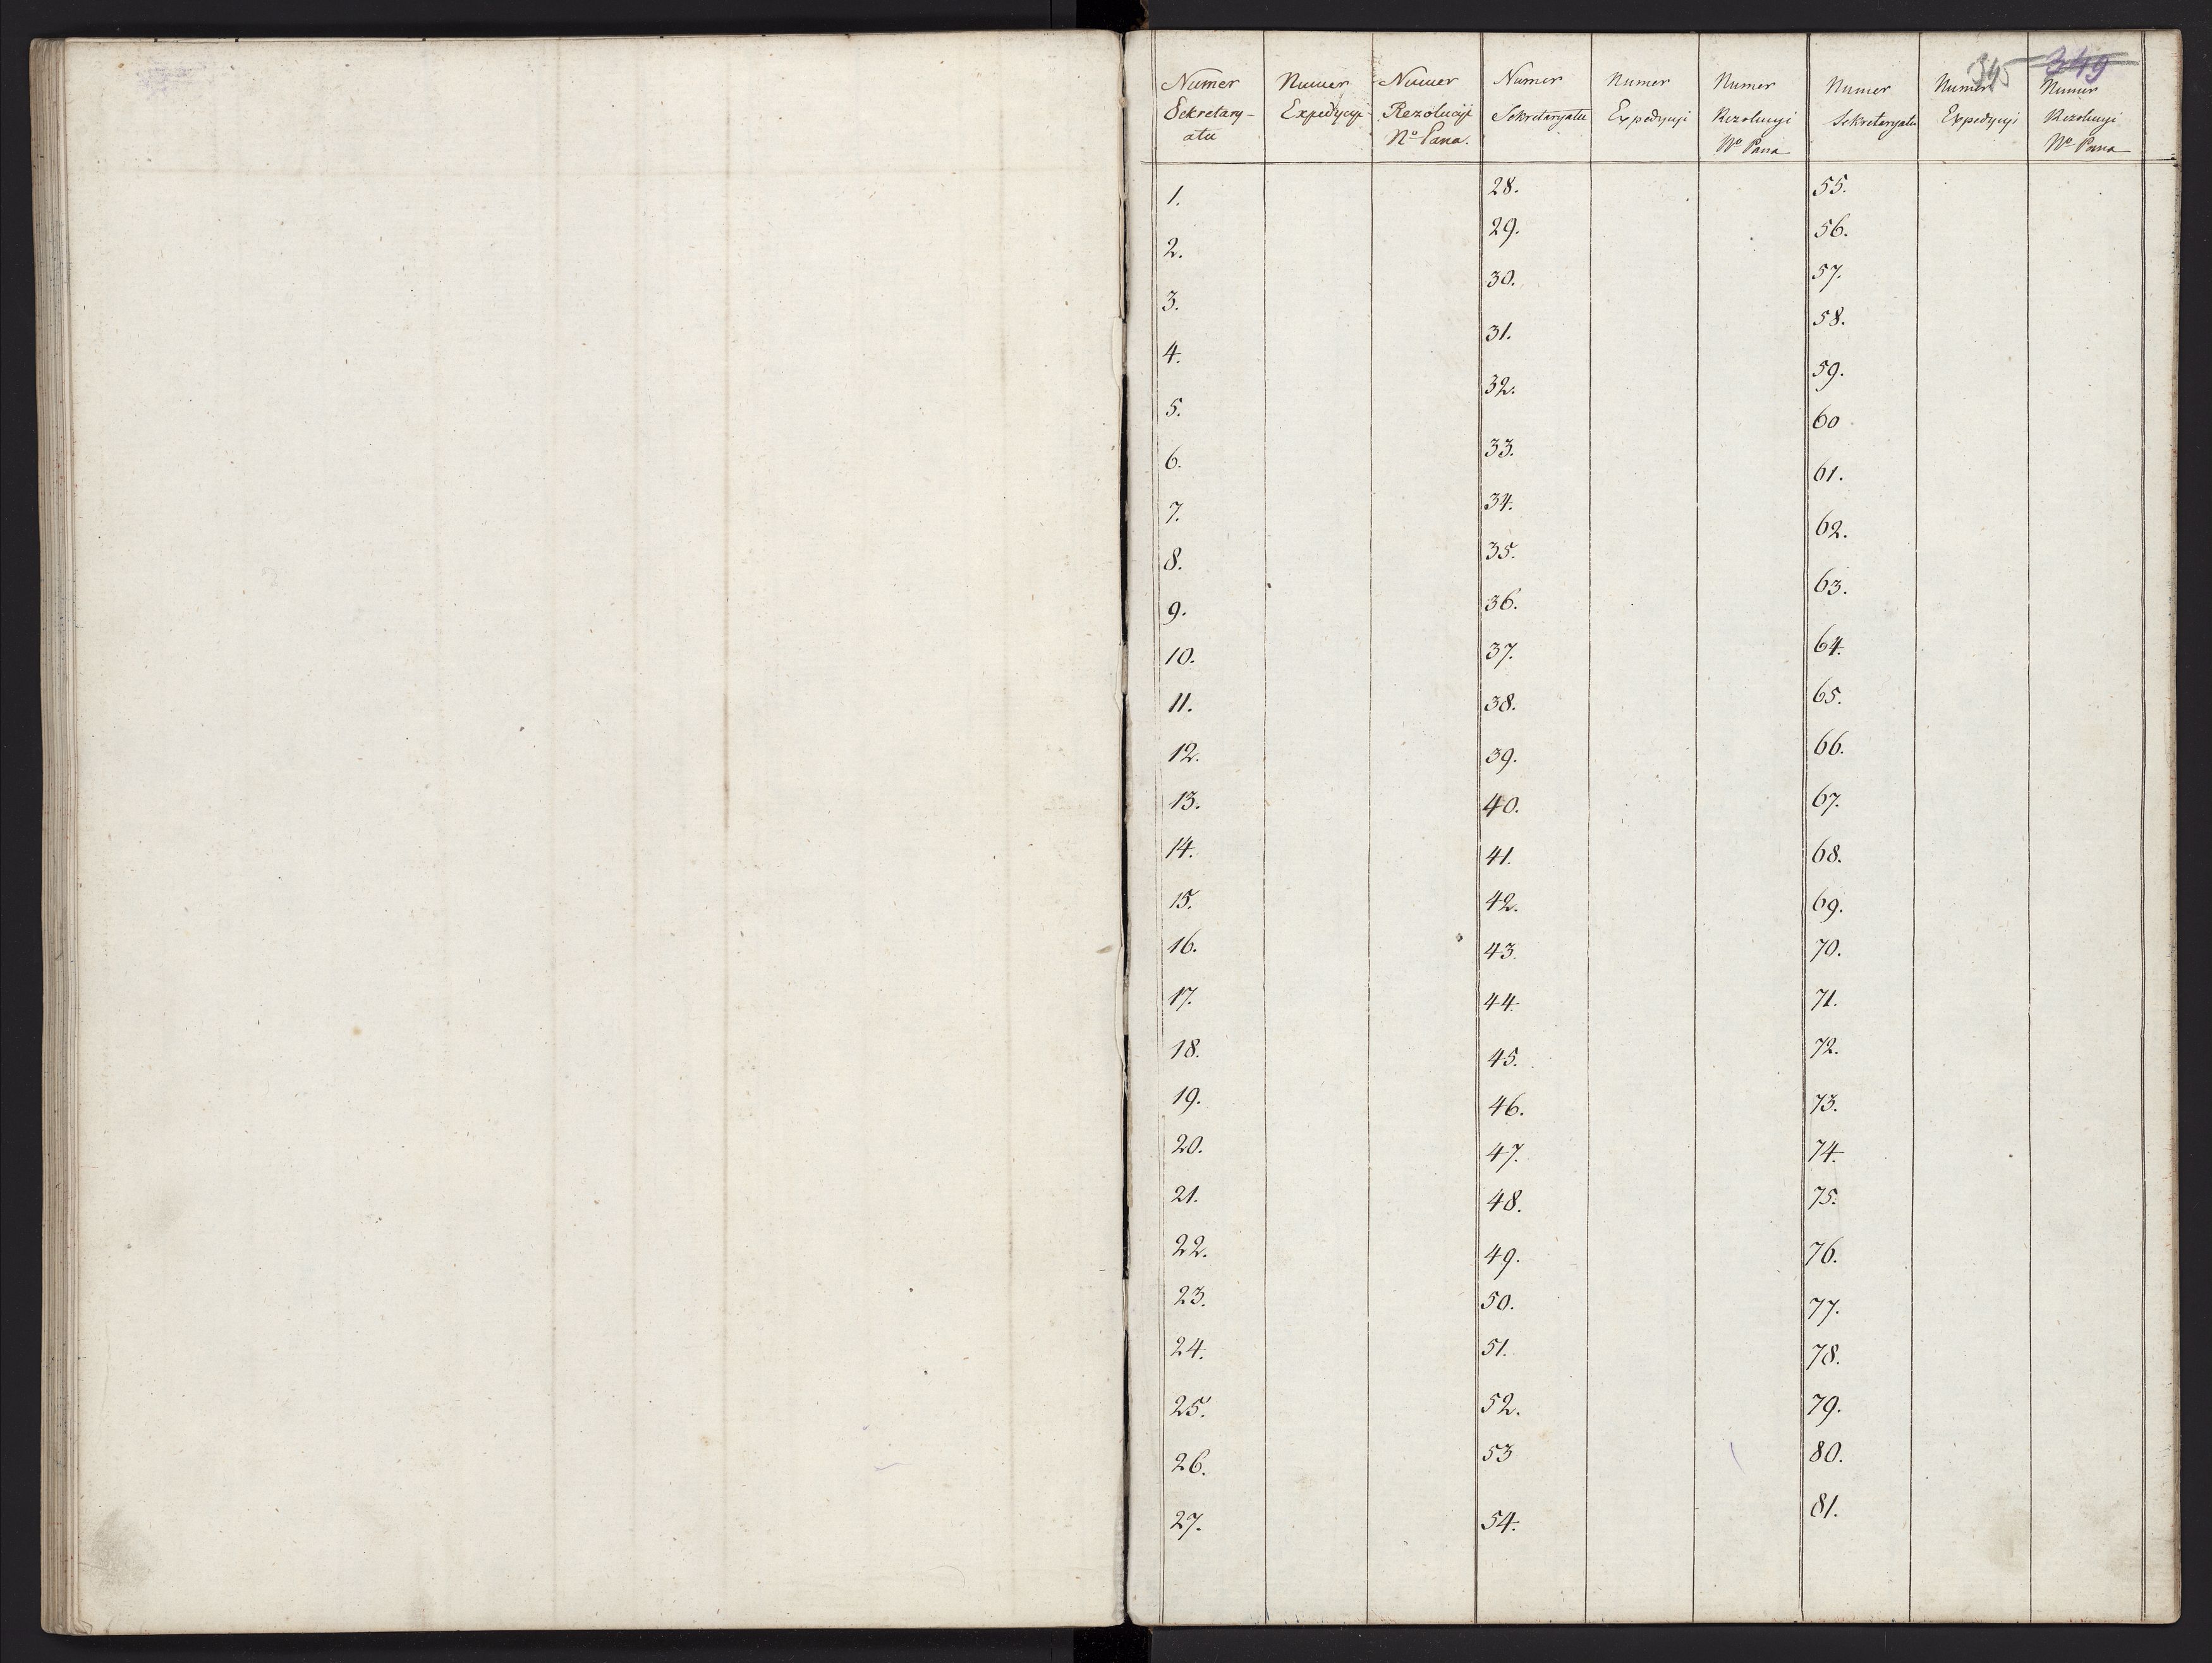 345 349
Numer Numer Numer Numer Numer Numer Numer Numer Numer
Sekretary- Expedycyi Rezolucyi Sekretaryatu Expedycyi Rezolucyi Sekretaryatu Expedycyi Rezolucyi
atu No Pana. No Pana No Pana
1. 28. 55.
2. 29. 56.
3. 30. 57.
4. 31. 58.
5. 32. 59.
6. 33. 60
7. 34. 61.
8. 35. 62.
9. 36. 63.
10. 37. 64.
11. 38. 65.
12. 39. 66.
13. 40. 67.
14. 41. 68.
15. 42. 69.
16. 43. 70.
17. 44. 71.
18. 45. 72.
19. 46. 73.
20. 47. 74.
21. 48. 75.
22. 49. 76.
23. 50. 77.
24. 51. 78.
25. 52. 79.
26. 53 80.
27. 54. 81.